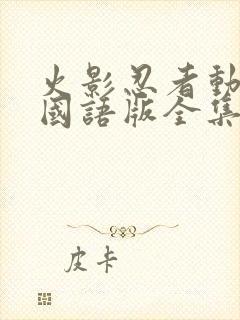 火影忍者動
國語版全集
皮卡